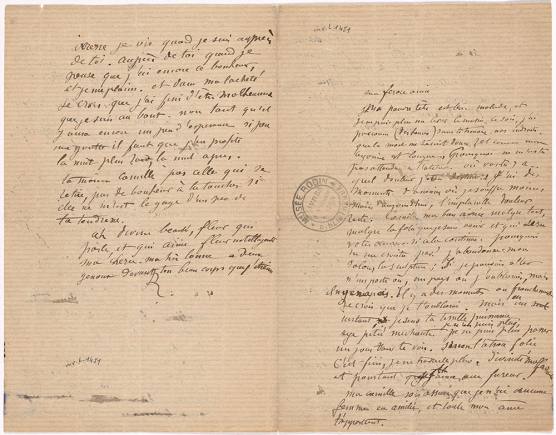 inv.L1451
intense je vis quand je suis auprès
de toi. Auprès de toi quand je
pense que j'ai encore ce bonheur,
et je me plains. et dans ma lâcheté
je crois que j'ai fini d'être malheureux
que je suis au bout. non tant qu'il
y aura encore un peu d'espérance si peu
une goutte il faut que j'en profite
la nuit plus tard, la nuit après.
ta main Camille pas celle qui se
retire, pas de bonheur à la toucher si
elle ne m'est le gage d'un peu de
ta tendresse.
ah divine beauté, fleur qui
parle, et qui aime, fleur intelligente
ma chérie. ma très bonne à deux
genoux devant ton beau corps que j'étreins
R
inv.L1451
ma féroce amie
Ma pauvre tête est bien malade, et
je ne puis plus me lever le matin. Ce soir, j'ai
parcouru (des heures) sans te trouver, nos endroits.
que la mort me serait douce. et comme mon
agonie est longue. Pourquoi ne m'as tu
pas attendu à l'atelier. où vas tu ? à
quel douleur j'étais destiné. J'ai des
moments d'amnésie où je souffre moins,
mais aujourd'hui, l'implacable douleur
reste. Camille ma bien aimée malgré tout,
malgré la folie que je sens venir et qui sera
votre œuvre, si cela continue. pourquoi
ne me crois tu pas ? J'abandonne mon
Salon, la sculpture ; Si je pouvais aller
n'importe où, un pays où j'oublierais, mais
il n'y en a pas. Il y a des moments où franchement
je crois que je t'oublierai. Mais en un seul
instant, je sens ta terrible puissance
aye pitié méchante. Je n'en puis plus, je ne puis plus passer
un jour sans te voir. Sinon l'atroce folie
C'est fini, je ne travaille plus. divinité malfaisante
et pourtant je t'aime avec fureur.
Ma Camille sois assurée que je n'ai aucune
femme en amitié, et toute mon âme
t'appartient.
MUSÉE RODIN